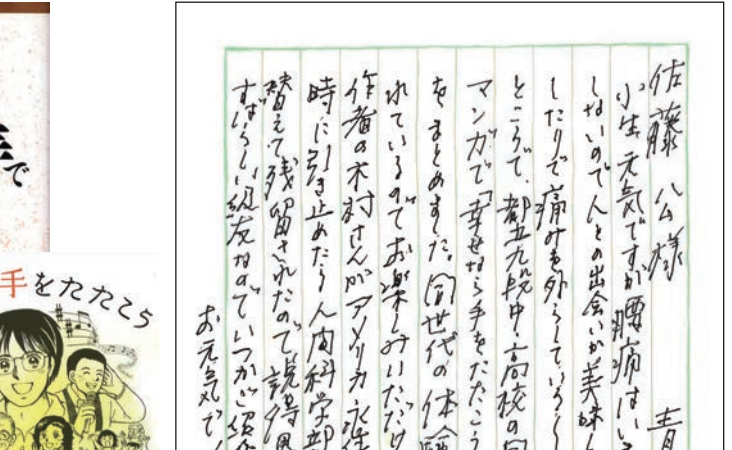 佐藤 公様 青
小生元気ですが腰痛はい
しないので人との出会いが美味し
したりで痛みも外らしている
ところで、都立九段中・高校の同
マンガで「幸せなら手をたたこう
をまとめました。同世代の体験
れているのでお楽しみいただけ
作者の木村さんがアメリカ永住
時に引き止めたら人間科学部
替えて残留されたので説得
すばらしい級友なのでいつかご紹介
お元気で
で
手をたたこう